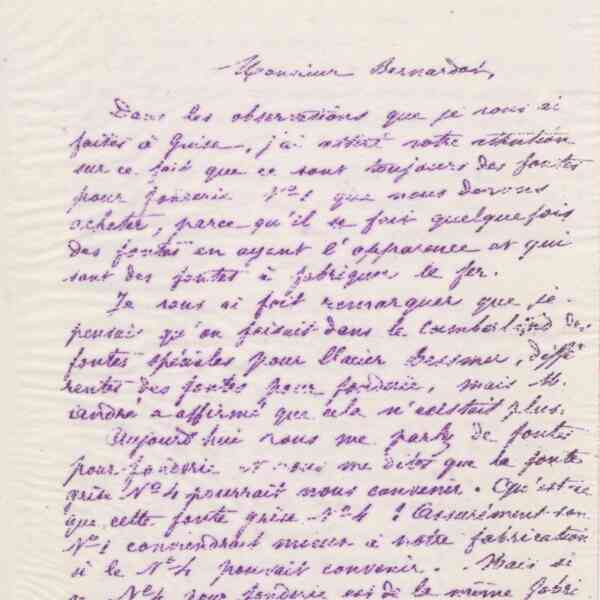 Monsieur Bernardot,
Dans les observations que je vous ai
faites à Guise, j'ai attiré votre attention
sur ce fait que ce sont toujours des fontes
pour fonderie N° 1 que nous devons
acheter, parce qu'il se fait quelquefois
des fontes en ayant l'apparence et qui
sont des fontes à fabriquer le fer.
Je vous ai fait remarquer que je
pensais qu'on faisait dans le Cumberland des
fontes spéciales pour l'acier Bessmer, diffé
rentes des fontes pour fonderie, mais M.
André a affirmé que cela n'existait plus.
Aujourd'hui vous me parlez de fontes
pour fonderie et vous me dites que la fonte
grise N° 4 pourrait nous convenir. Qu'est-ce
que cette fonte grise N° 4 ? Assurément son
N° 1 conviendrait mieux à notre fabrication
si le N° 4 pouvait convenir. Mais si
N° 4 pour fonderie est de la même fabri